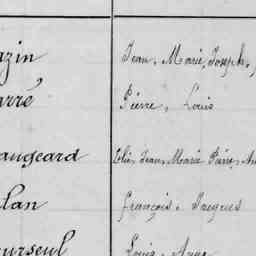 azin Jean, Marie, Joseph,
arré Pierre, Louis
augeard Elie, Jean, Marie Pierre, Au
lan François, Jacques
ourseul Louis, Ange